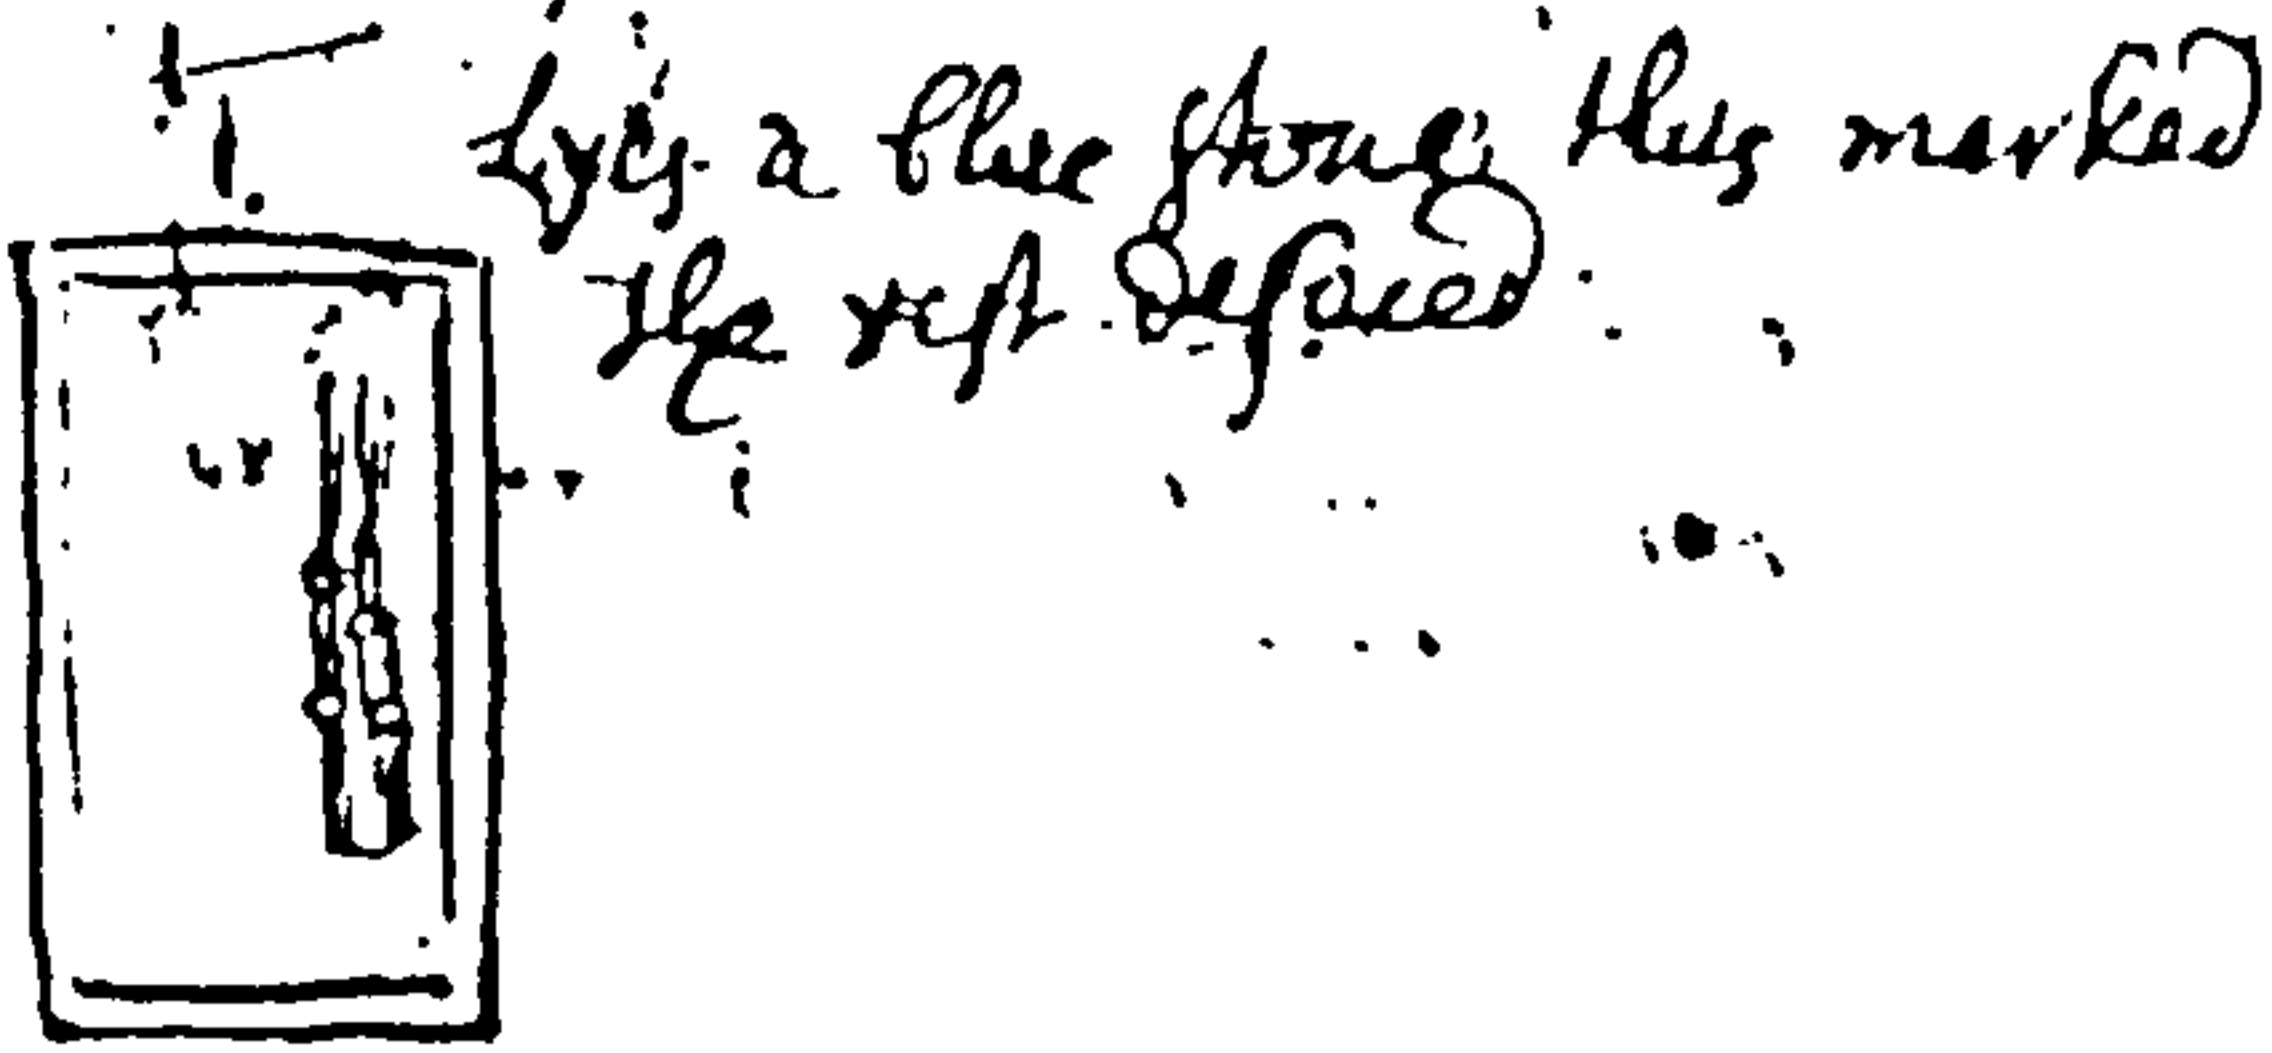 Lyes a blue stone thus marked
the rest Defaced